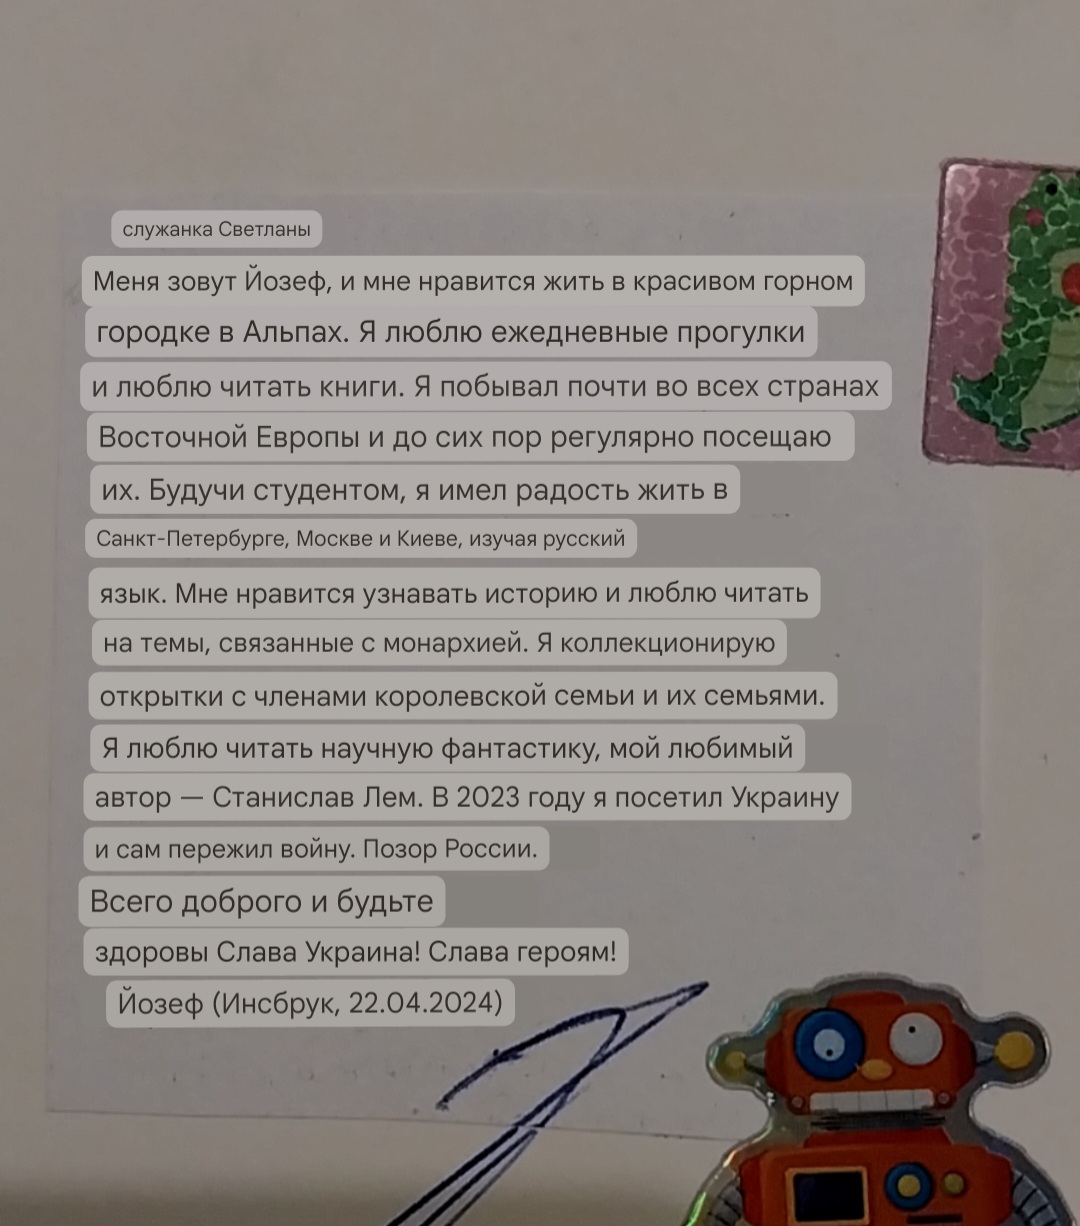 служанка Светланы
Меня зовут Йозеф, и мне нравится жить в красивом горном
городке в Альпах. Я люблю ежедневные прогулки
и люблю читать книги. Я побывал почти во всех странах
Восточной Европы и до сих пор регулярно посещаю
их. Будучи студентом, я имел радость жить в
Санкт-Петербурге, Москве и Киеве, изучая русский
язык. Мне нравится узнавать историю и люблю читать
на темы, связанные с монархией. Я коллекционирую
открытки с членами королевской семьи и их семьями.
Я люблю читать научную фантастику, мой любимый
автор — Станислав Лем. В 2023 году я посетил Украину
и сам пережил войну. Позор России.
Всего доброго и будьте
здоровы Слава Украина! Слава героям!
Йозеф (Инсбрук, 22.04.2024)